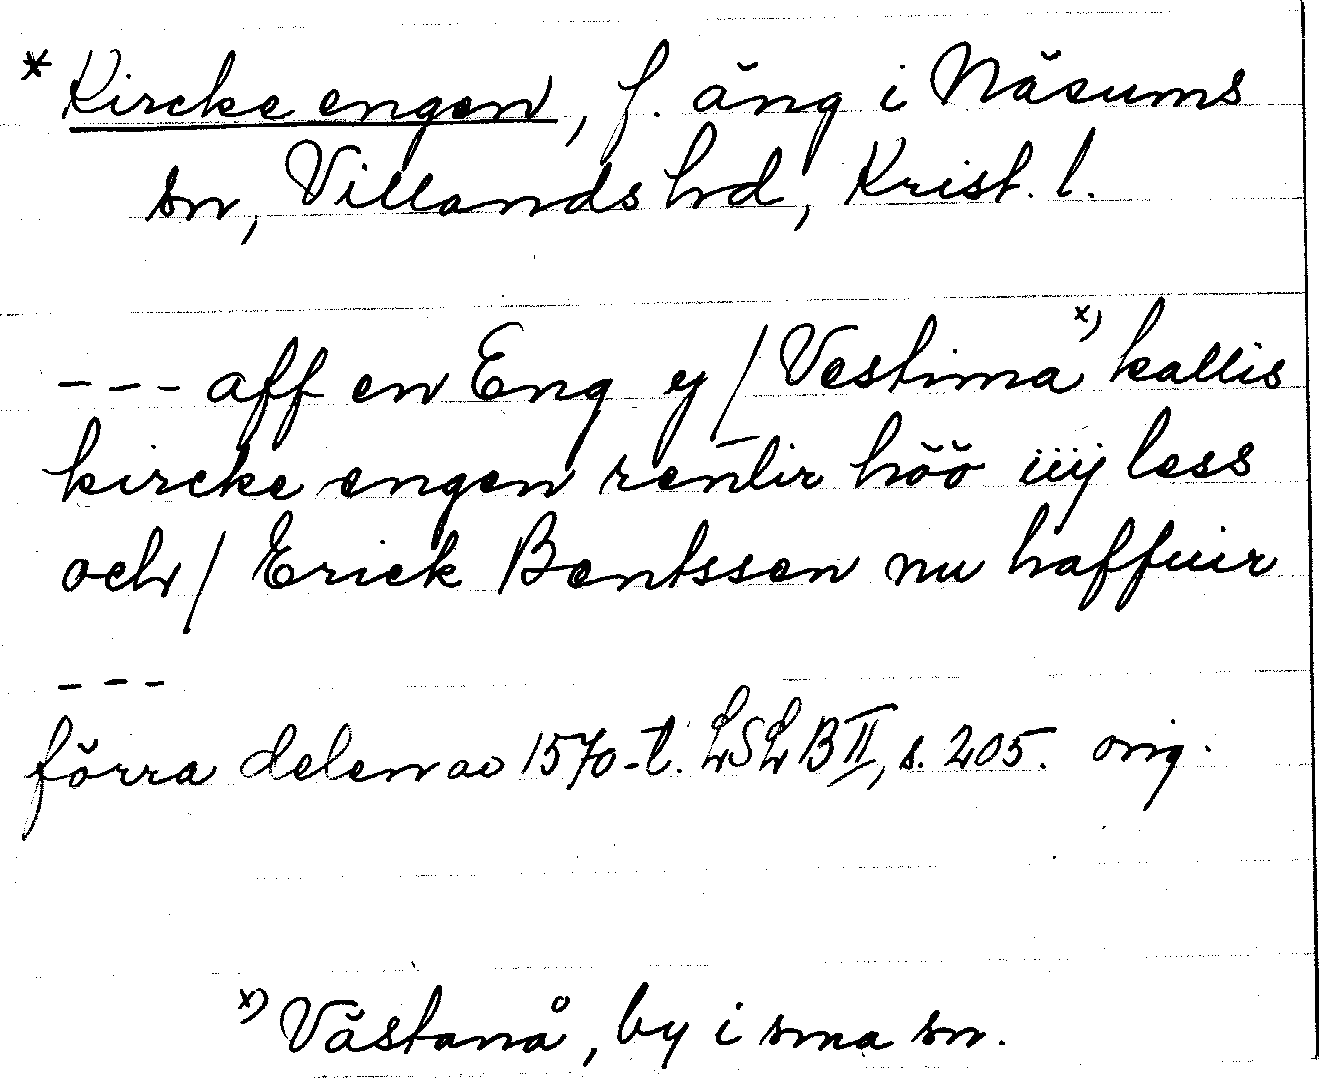 * Kircke engen, f. äng i Näsums
sn, Villands hd, Krist. l.
--- aff en Eng y / Vestina x) kallis
kircke engen rentir höö iiij less
och / Erick Bentssen nu haffuir
---
förra delen av 1570-t. LSLB II, s. 205. orig.
x) Västanå, by i sma sn.